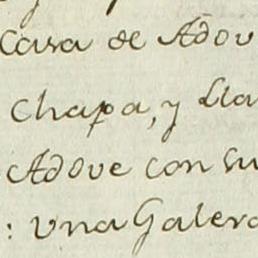 Casa de Adov
Chapa, y Lla
Adove con su
: Una Galera